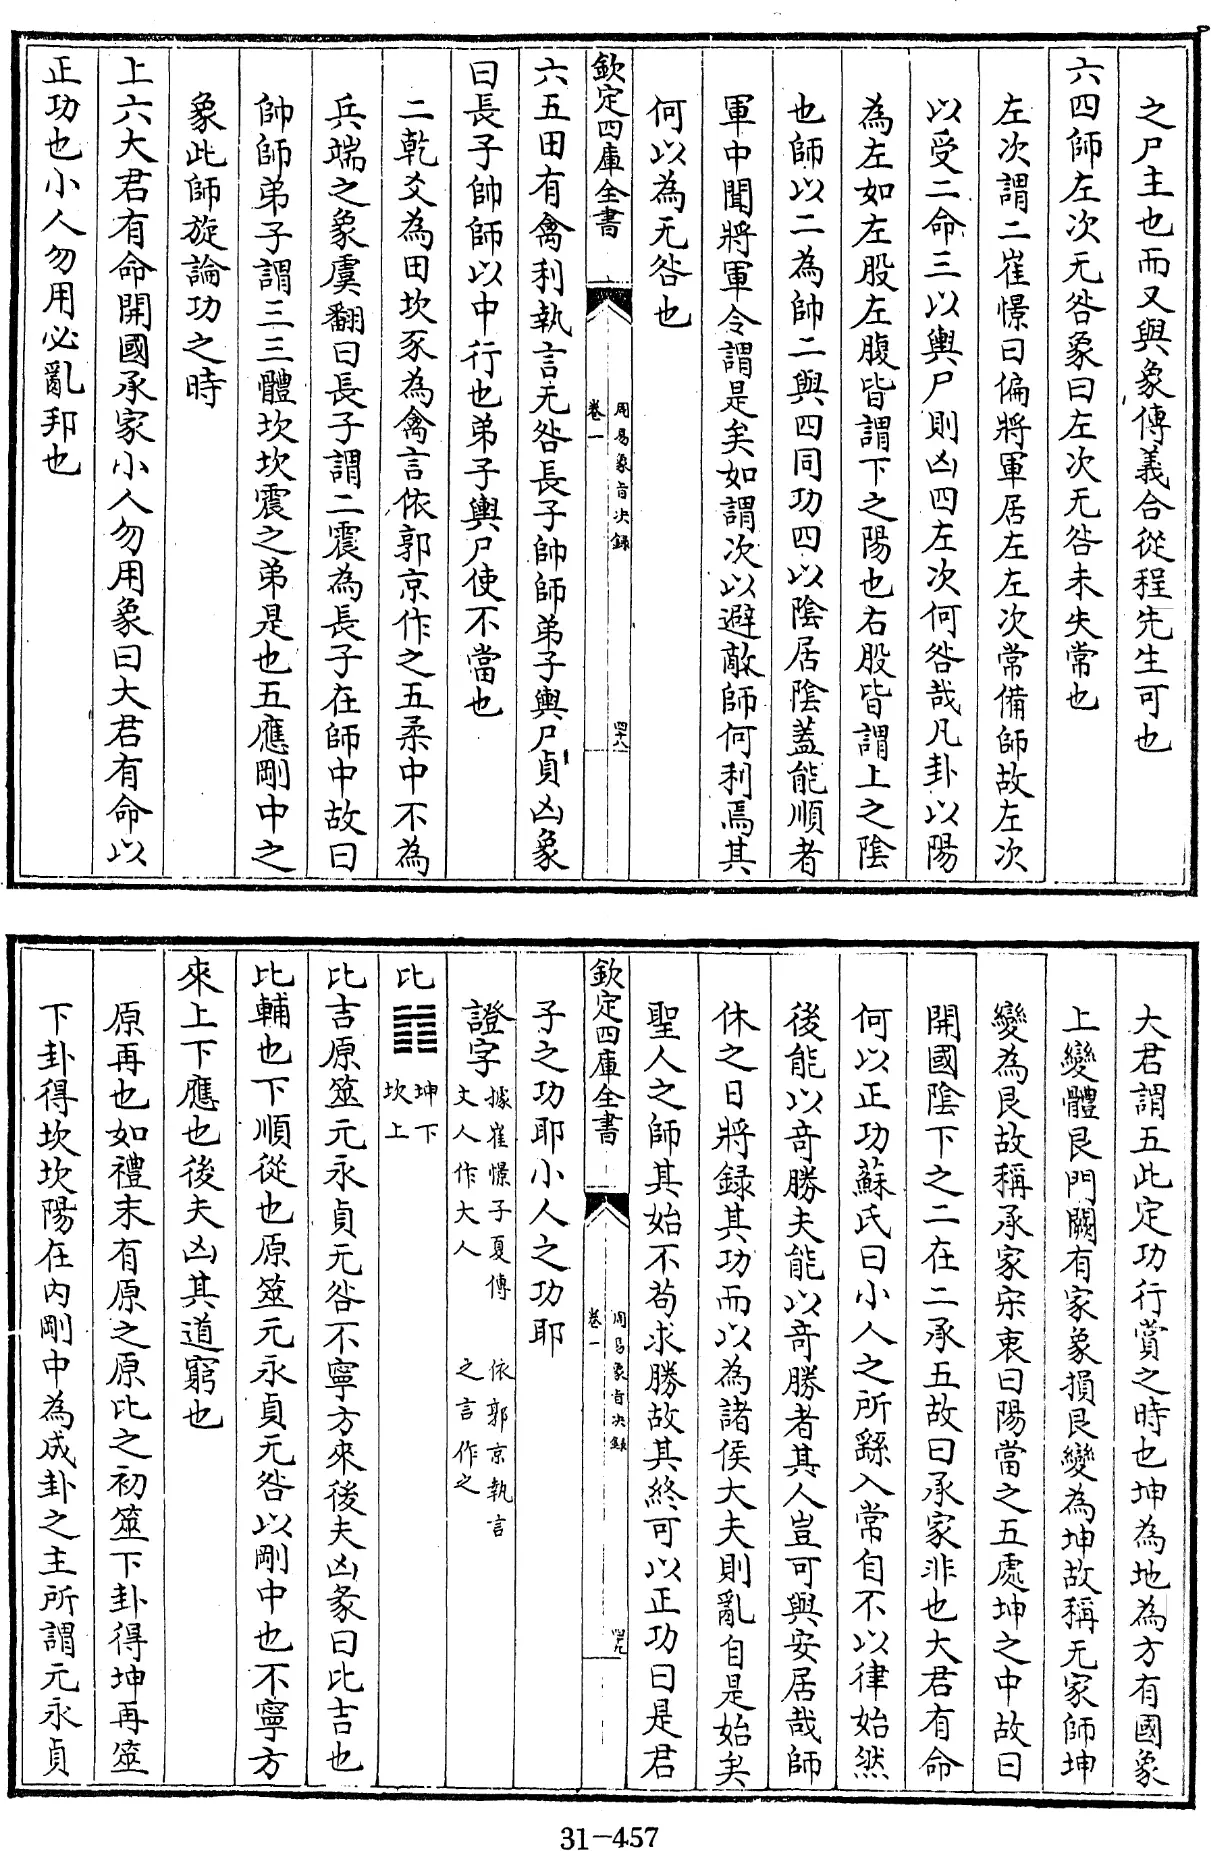 之尸主也而又與彖傳義合從程先生可也
六四師左次无咎象曰左次无咎未失常也
左次謂二崔憬曰偏將軍居左左次常備師故左次
以受二命三以輿尸則凶四左次何咎哉凡卦以陽
為左如左股左腹皆謂下之陽也右股皆謂上之陰
也師以二為帥二與四同功四以陰居陰蓋能順者
軍中聞將軍令謂是矣如謂次以避敵師何利焉其
何以為无咎也
欽定四庫全書
周易象旨決錄
卷一
四十八
六五田有禽利執言无咎長子帥師弟子輿尸貞凶象
曰長子帥師以中行也弟子輿尸使不當也
二乾爻為田坎豕為禽言依郭京作之五柔中不為
兵端之象虞翻曰長子謂二震為長子在師中故曰
帥師弟子謂三三體坎坎震之弟是也五應剛中之
象此師旋論功之時
上六大君有命開國承家小人勿用象曰大君有命以
正功也小人勿用必亂邦也
大君謂五此定功行賞之時也坤為地為方有國象
上變體艮門闕有家象損艮變為坤故稱无家師坤
變為艮故稱承家宋衷曰陽當之五處坤之中故曰
開國陰下之二在二承五故曰承家非也大君有命
何以正功蘇氏曰小人之所繇入常自不以律始然
後能以奇勝夫能以奇勝者其人豈可與安居哉師
休之日將録其功而以為諸侯大夫則亂自是始矣
聖人之師其始不茍求勝故其終可以正功曰是君
欽定四庫全書
周易象旨決錄
卷一
四十九
子之功耶小人之功耶
證字
據崔憬子夏傳
丈人作大人
依郭京執言
之言作之
比䷇
坤下
坎上
比吉原筮元永貞无咎不寧方來後夫凶彖曰比吉也
比輔也下順從也原筮元永貞无咎以剛中也不寧方
來上下應也後夫凶其道窮也
原再也如禮末有原之原比之初筮下卦得坤再筮
下卦得坎坎陽在內剛中為成卦之主所謂元永貞
31-457